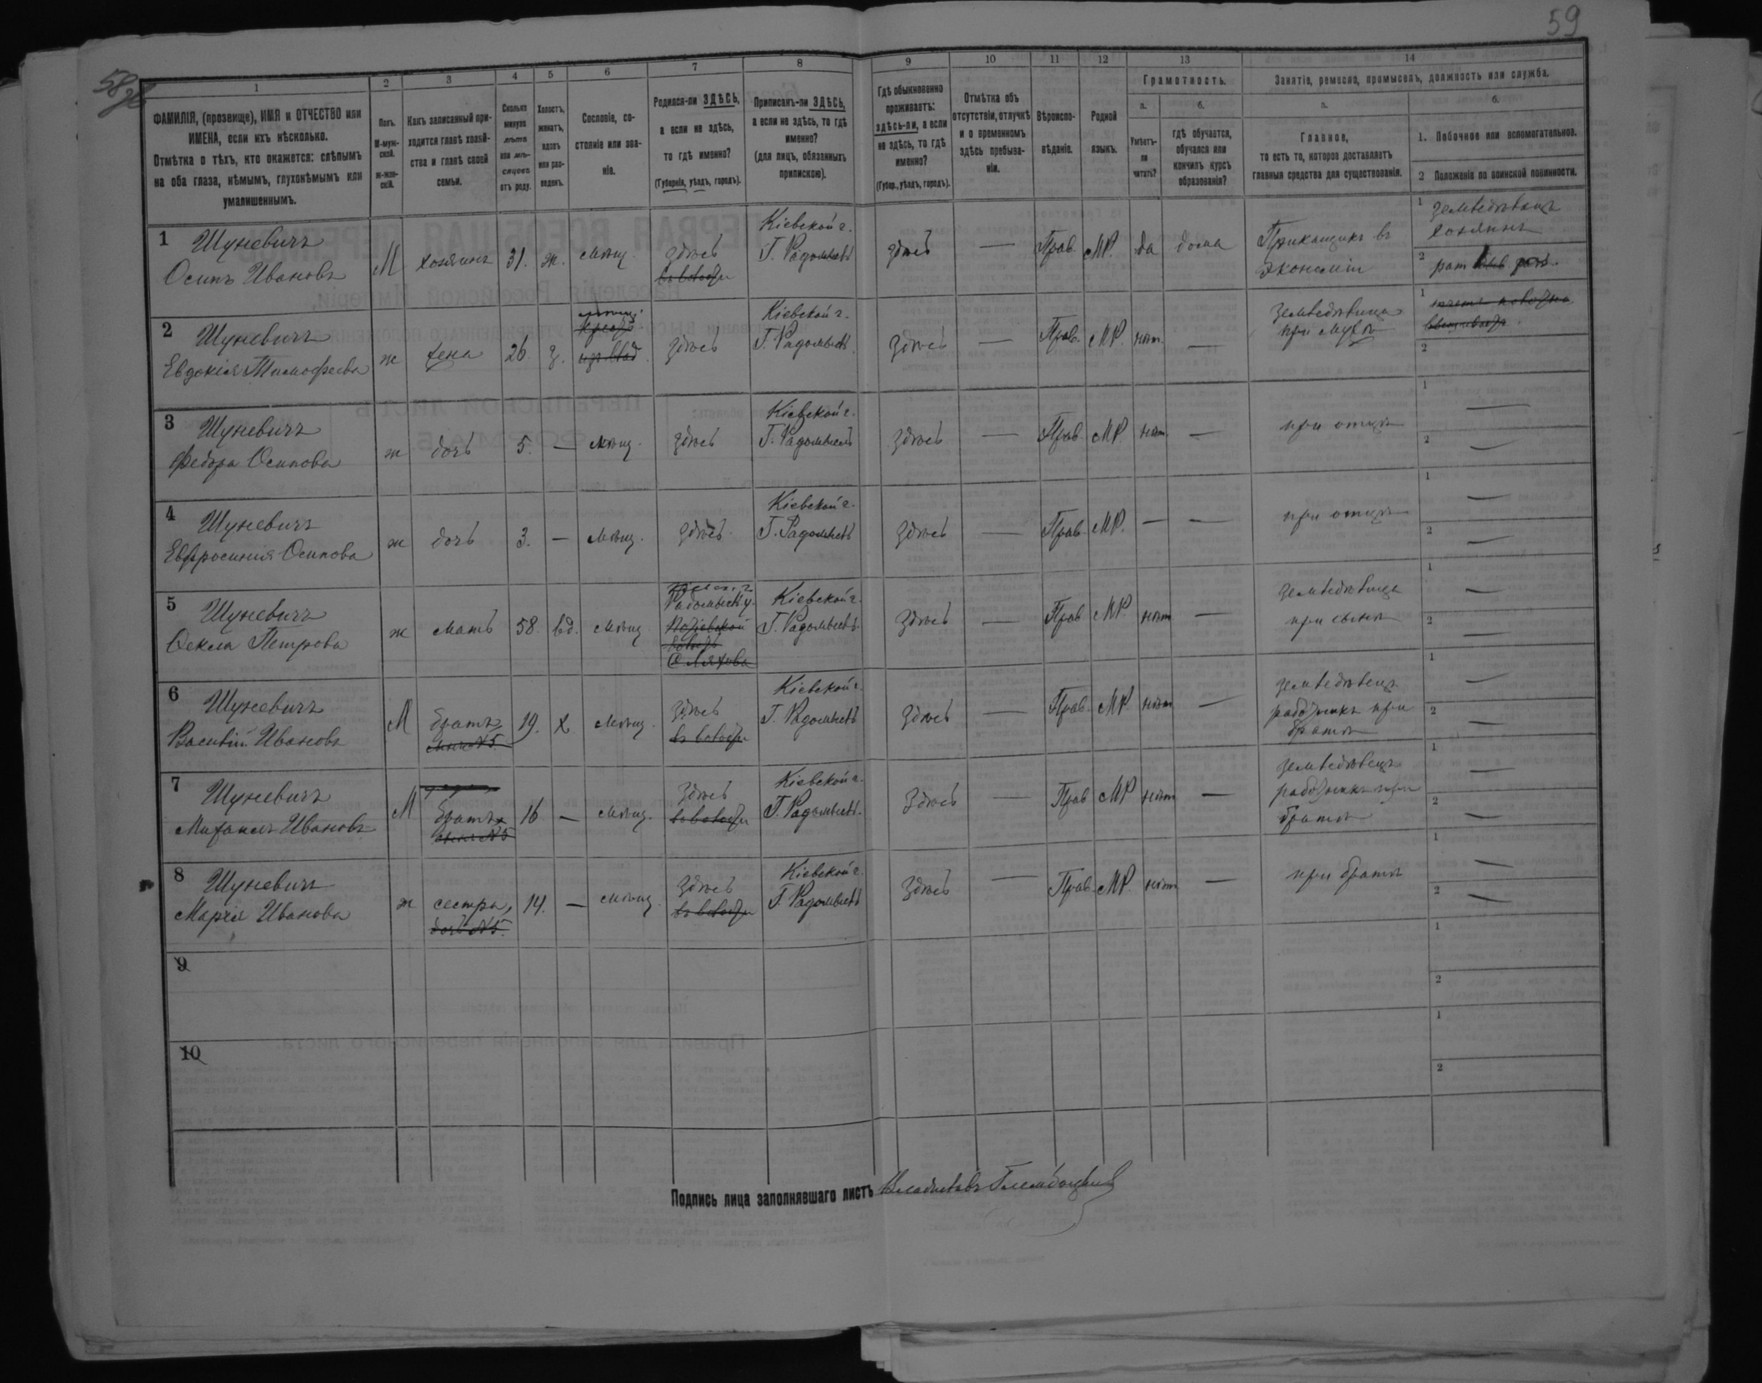 59
58об
1 2 3 4 5 6 7 8 9 10 11 12 13 14
ФАМИЛІЯ, (прозвище), ИМЯ и ОТЧЕСТВО или
ИМЕНА, если ихъ нѣсколько.
Отмѣтка о тѣхъ, кто окажется: слѣпымъ
на оба глаза, нѣмымъ, глухонѣмымъ или
умалишеннымъ.
Полъ.
М-муж-
ской.
Ж-жен-
скій.
Какъ записанный при-
ходится главѣ хозяй-
ства и главѣ своей
семьи.
Сколько
минуло
лѣтъ
или мѣ-
сяцевъ
отъ роду.
Холостъ,
женатъ,
вдовъ
или раз-
веденъ.
Сословіе, со-
стояніе или зва-
ніе.
Родился-ли ЗДѢСЬ,
а если не здѣсь,
то гдѣ именно?
(Губернія, уѣздъ, городъ).
Приписанъ-ли ЗДѢСЬ,
а если не здѣсь, то гдѣ
именно?
(для лицъ, обязанныхъ
припискою).
Гдѣ обыкновенно
проживаетъ:
здѣсь-ли, а если
не здѣсь, то гдѣ
именно?
(Губер., уѣздъ, городъ).
Отмѣтка объ
отсутствіи, отлучкѣ
и о временномъ
здѣсь пребыва-
ніи.
Вѣроиспо-
вѣданіе.
Родной
языкъ.
Грамотность.
а.
Умѣетъ-
ли
читать?
б.
гдѣ обучается,
обучался или
кончилъ курсъ
образованія?
Занятіе, ремесло, промыселъ, должность или служба.
а.
Главное,
то есть то, которое доставляетъ
главныя средства для существованія.
б.
1. Побочное или вспомогательное.
2 Положеніе по воинской повинности.
1 Шуневичъ
Осипъ Ивановъ
М хозяинъ 31. ж. мѣщ.
здѣсь
Кіевской г.
Г. Радомысль
здѣсь — Прав МР. да дома
Прикащикъ въ
экономіи
1 земледѣлецъ
хозяинъ
2 рат
2 Шуневичъ
Евдокія Тимофеева
ж жена 26 з. мѣщ.
здѣсь
Кіевской г.
Г. Радомысль
здѣсь — Прав. МР. нѣт —
земледѣлица
при мужѣ
1
2
3 Шуневичъ
Федора Осипова
ж дочь 5. — мѣщ. здѣсь
Кіевской г.
Г. Радомысль
здѣсь — Прав МР. нѣт — при отцѣ
1 —
2 —
4 Шуневичъ
Евфросинія Осипова
ж дочь 3. — мѣщ. здѣсь
Кіевской г.
Г. Радомысль
здѣсь — Прав МР. — — при отцѣ
1 —
2 —
5 Шуневичъ
Ѳекла Петрова
ж мать 58. вд. мѣщ.
Радомысл у.
Кіевской г.
Г. Радомысль
здѣсь — Прав МР. нѣт —
земледѣлица
при сынѣ
1 —
2 —
6 Шуневичъ
Василій Ивановъ
М братъ 19. х мѣщ.
здѣсь
Кіевской г.
Г. Радомысль
здѣсь — Прав МР нѣт —
земледѣлецъ
работникъ при
братѣ
1 —
2 —
7 Шуневичъ
Михаилъ Ивановъ
М братъ 16 — мѣщ.
здѣсь
Кіевской г.
Г. Радомысль
здѣсь — Прав МР нѣт —
земледѣлецъ
работникъ при
братѣ
1 —
2 —
8 Шуневичъ
Марія Иванова
ж сестра, 14. — мѣщ.
дочь №5
здѣсь
Кіевской г.
Г. Радомысль
здѣсь — Прав. МР нѣт — при братѣ
1 —
2 —
9
1
2
10
1
2
Подпись лица заполнявшаго листъ